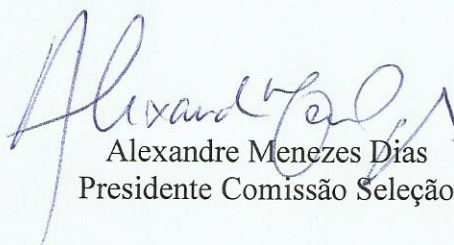 Alexandre Menezes Dias
Presidente Comissão Seleção